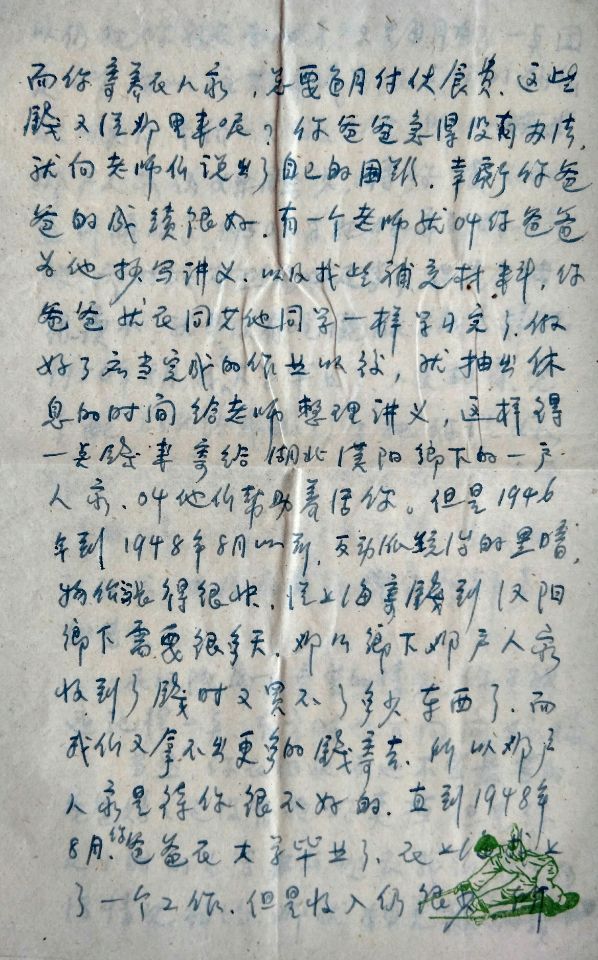 而你寄养在人家,总要每月付伙食费.这些
錢又従那里来呢?你爸爸急得没有办法,
就向老师们说出了自己的困难.幸虧你爸
爸的成績很好.有一个老师就叫你爸爸
为他抄写讲义.以及找些補充材料,你
爸爸就在同其他同学一样学习完了.做
好了应当完成的作业以後,就抽出休
息的时间给老师整理讲义,这样得
一点錢来寄给湖北漢阳鄉下的一户
人家.叫他们帮助养活你。但是1946
年到1948年8月以前,反动派统治的黑暗,
物价漲得很快.従上海寄錢到汉阳
鄉下需要很多天.那么鄉下那户人家
收到了錢时又買不了多少东西了.而
我们又拿不出更多的錢寄去.所以那户
人家是待你很不好的.直到1948年
8月.你爸爸在大学毕业了.在上海找上
了一个工作.但是收入仍很少